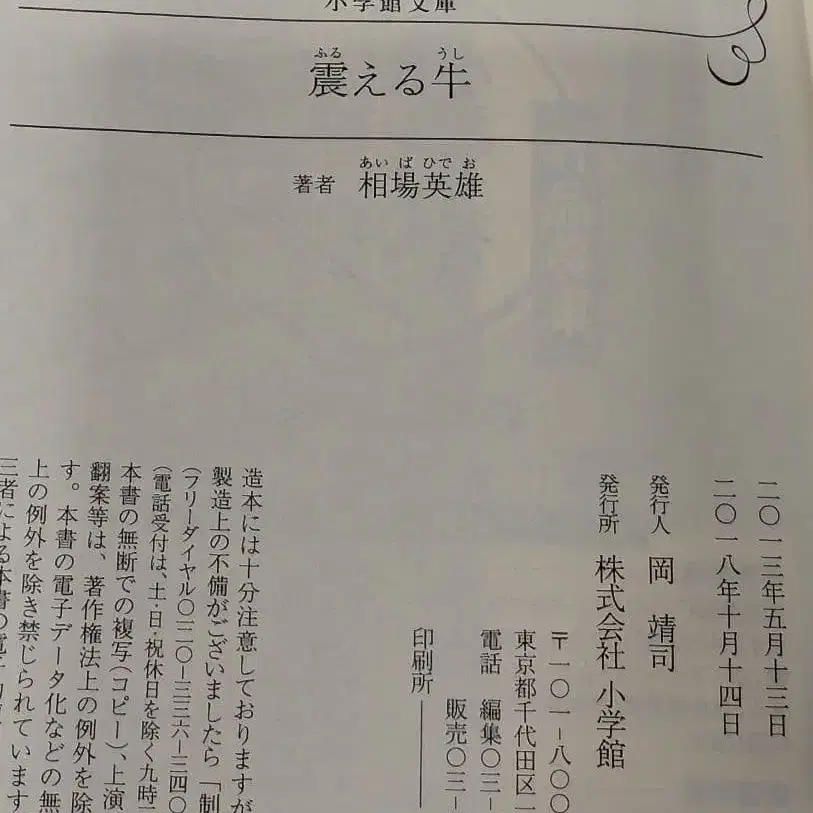 小学館文庫
震える牛
ふる うし
著者 相場英雄
あい ば ひで お
二〇一三年五月十三日
二〇一八年十月十四日
発行人 岡 靖司
発行所 株式会社 小学館
〒一〇一-八〇〇
東京都千代田区一
電話 編集〇三-
販売〇三-
印刷所
造本には十分注意しておりますが
製造上の不備がございましたら「制
(フリーダイヤル〇一二〇-三三六-三四〇
(電話受付は、土・日・祝休日を除く九時
本書の無断での複写(コピー)、上演
翻案等は、著作権法上の例外を除
す。本書の電子データ化などの無
上の例外を除き禁じられています
三者による本書の電子